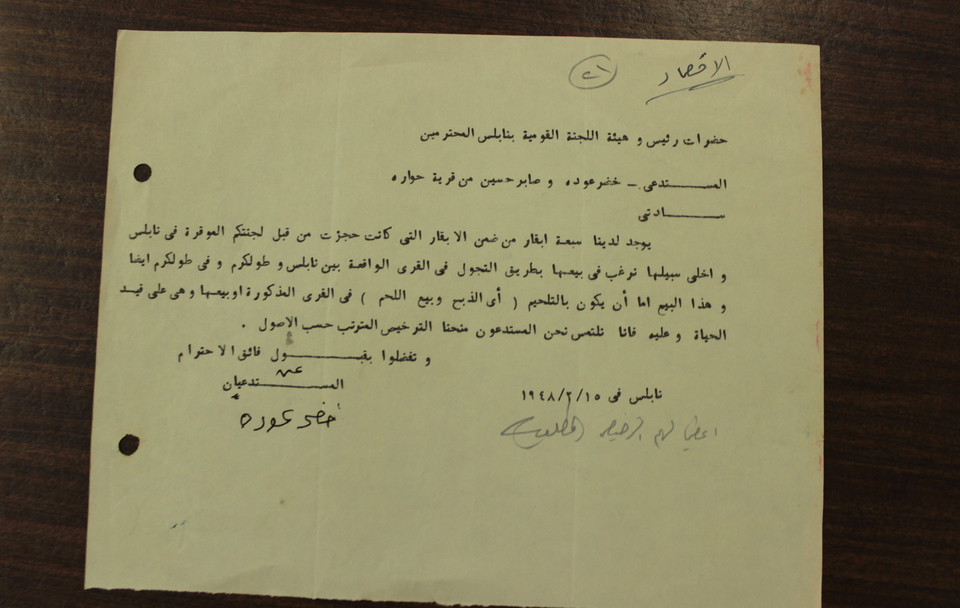 الاقتصاد
٢١
حضرات رئيس و هيئة اللجنة القومية بنابلس المحترمين
المستدعى - خضر عوده و صابر حسين من قرية حواره
سادتى
يوجد لدينا سبعة ابقار من ضمن الابقار التى كانت حجزت من قبل لجنتكم الموقرة فى نابلس
و اخلى سبيلها نرغب فى بيعها بطريق التجول فى القرى الواقعة بين نابلس و طولكرم و فى طولكرم ايضا
و هذا البيع اما أن يكون بالتلحيم ( أى الذبح وبيع اللحم ) فى القرى المذكورة او بيعها و هى على قيد
الحياة و عليه فانا نلتمس نحن المستدعون منحنا الترخيص المترتب حسب الاصول .
و تفضلوا بقبول فائق الاحترام
عن
المستدعيان
نابلس فى ١٥/٢/١٩٤٨
خضر عوده
لهم